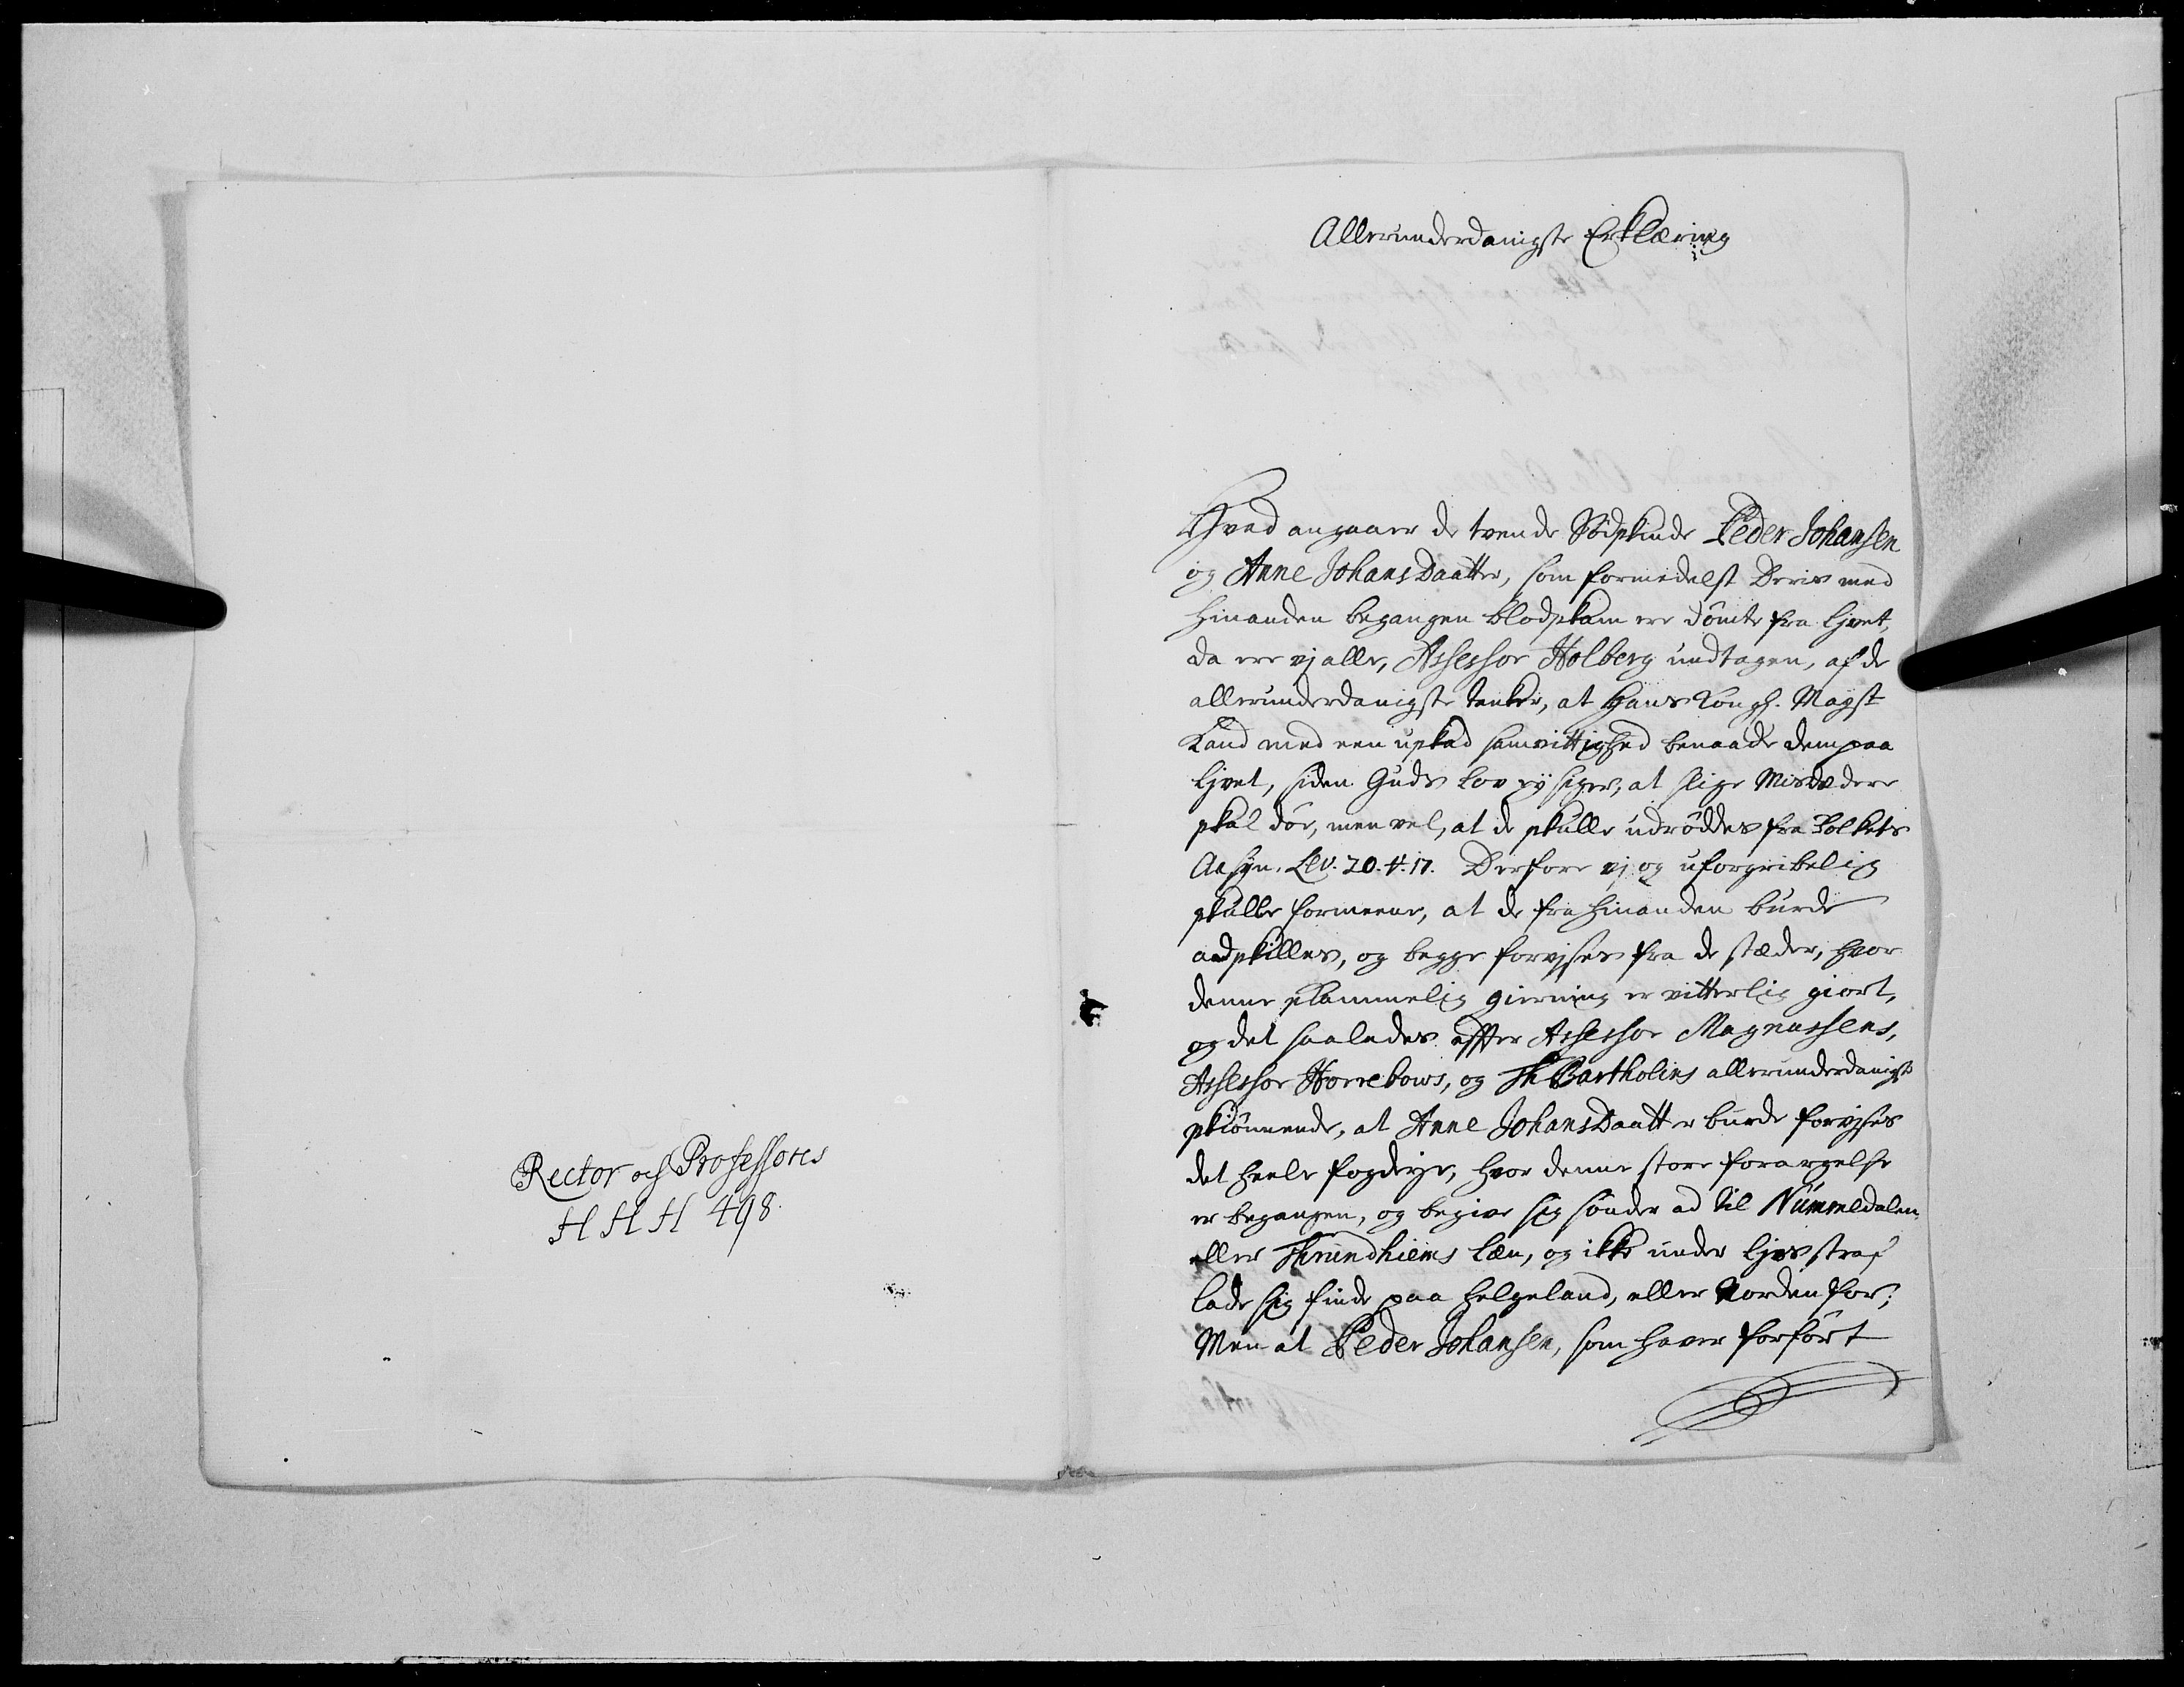 Rector og Professores
H H H 498.
Allerunderdanigste Erklæring
Hvad angaaer de tvende Södskinde Peder Johansen
og Anne JohansDaatter, som formedelst Deris med
hinanden begangen blodskam ere dömte fra livet,
da ere vj alle, Assessor Holberg undtagen, af de
allerunderdanigste tanker, at Hans Kongl. Mayst
Kand med een uskad samvittighed benaade dem paa
livet, siden Guds Lov ey siger, at slige Misdædere
skal döe, men vel, at de skulle udröddes fra Folkets
Aasyn. Lev. 20. v. 17. Derfore vj og uforgribelig
skulle formeene, at de fra hinanden burde
adskilles, og begge forvjses fra de stæder, hvor
denne skammelig gierning er vitterlig giort,
og det saaledes effter Assessor Magnussens,
Assessor Horrebows, og Th Bartholins allerunderdanigst
skiönnende, at Anne JohansDaatter burde forvjses
det heele fogderje, hvor denne store forargelse
er begangen, og begive sig sönder ad til Nummedalen
eller Thrundhiems læn, og ikke under livs straf
lade sig finde paa Helgeland, eller Norden for;
Men at Peder Johansen, som haver forfört